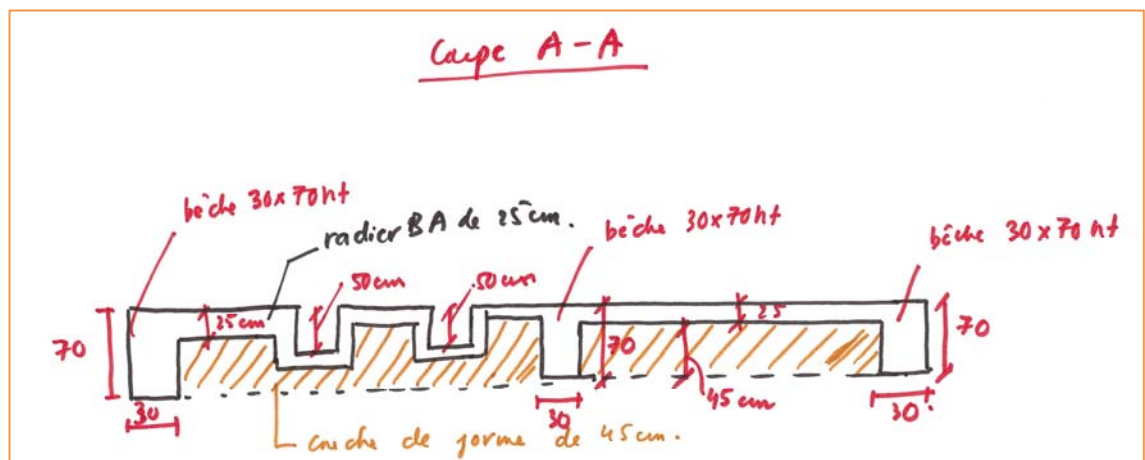 Coupe A-A
bêche 30x70ht
radier BA de 25cm.
bêche 30x70ht
bêche 30x70 ht
50cm
50cm
25cm
25
70
70
70
45cm
30
30
30
couche de forme de 45cm.